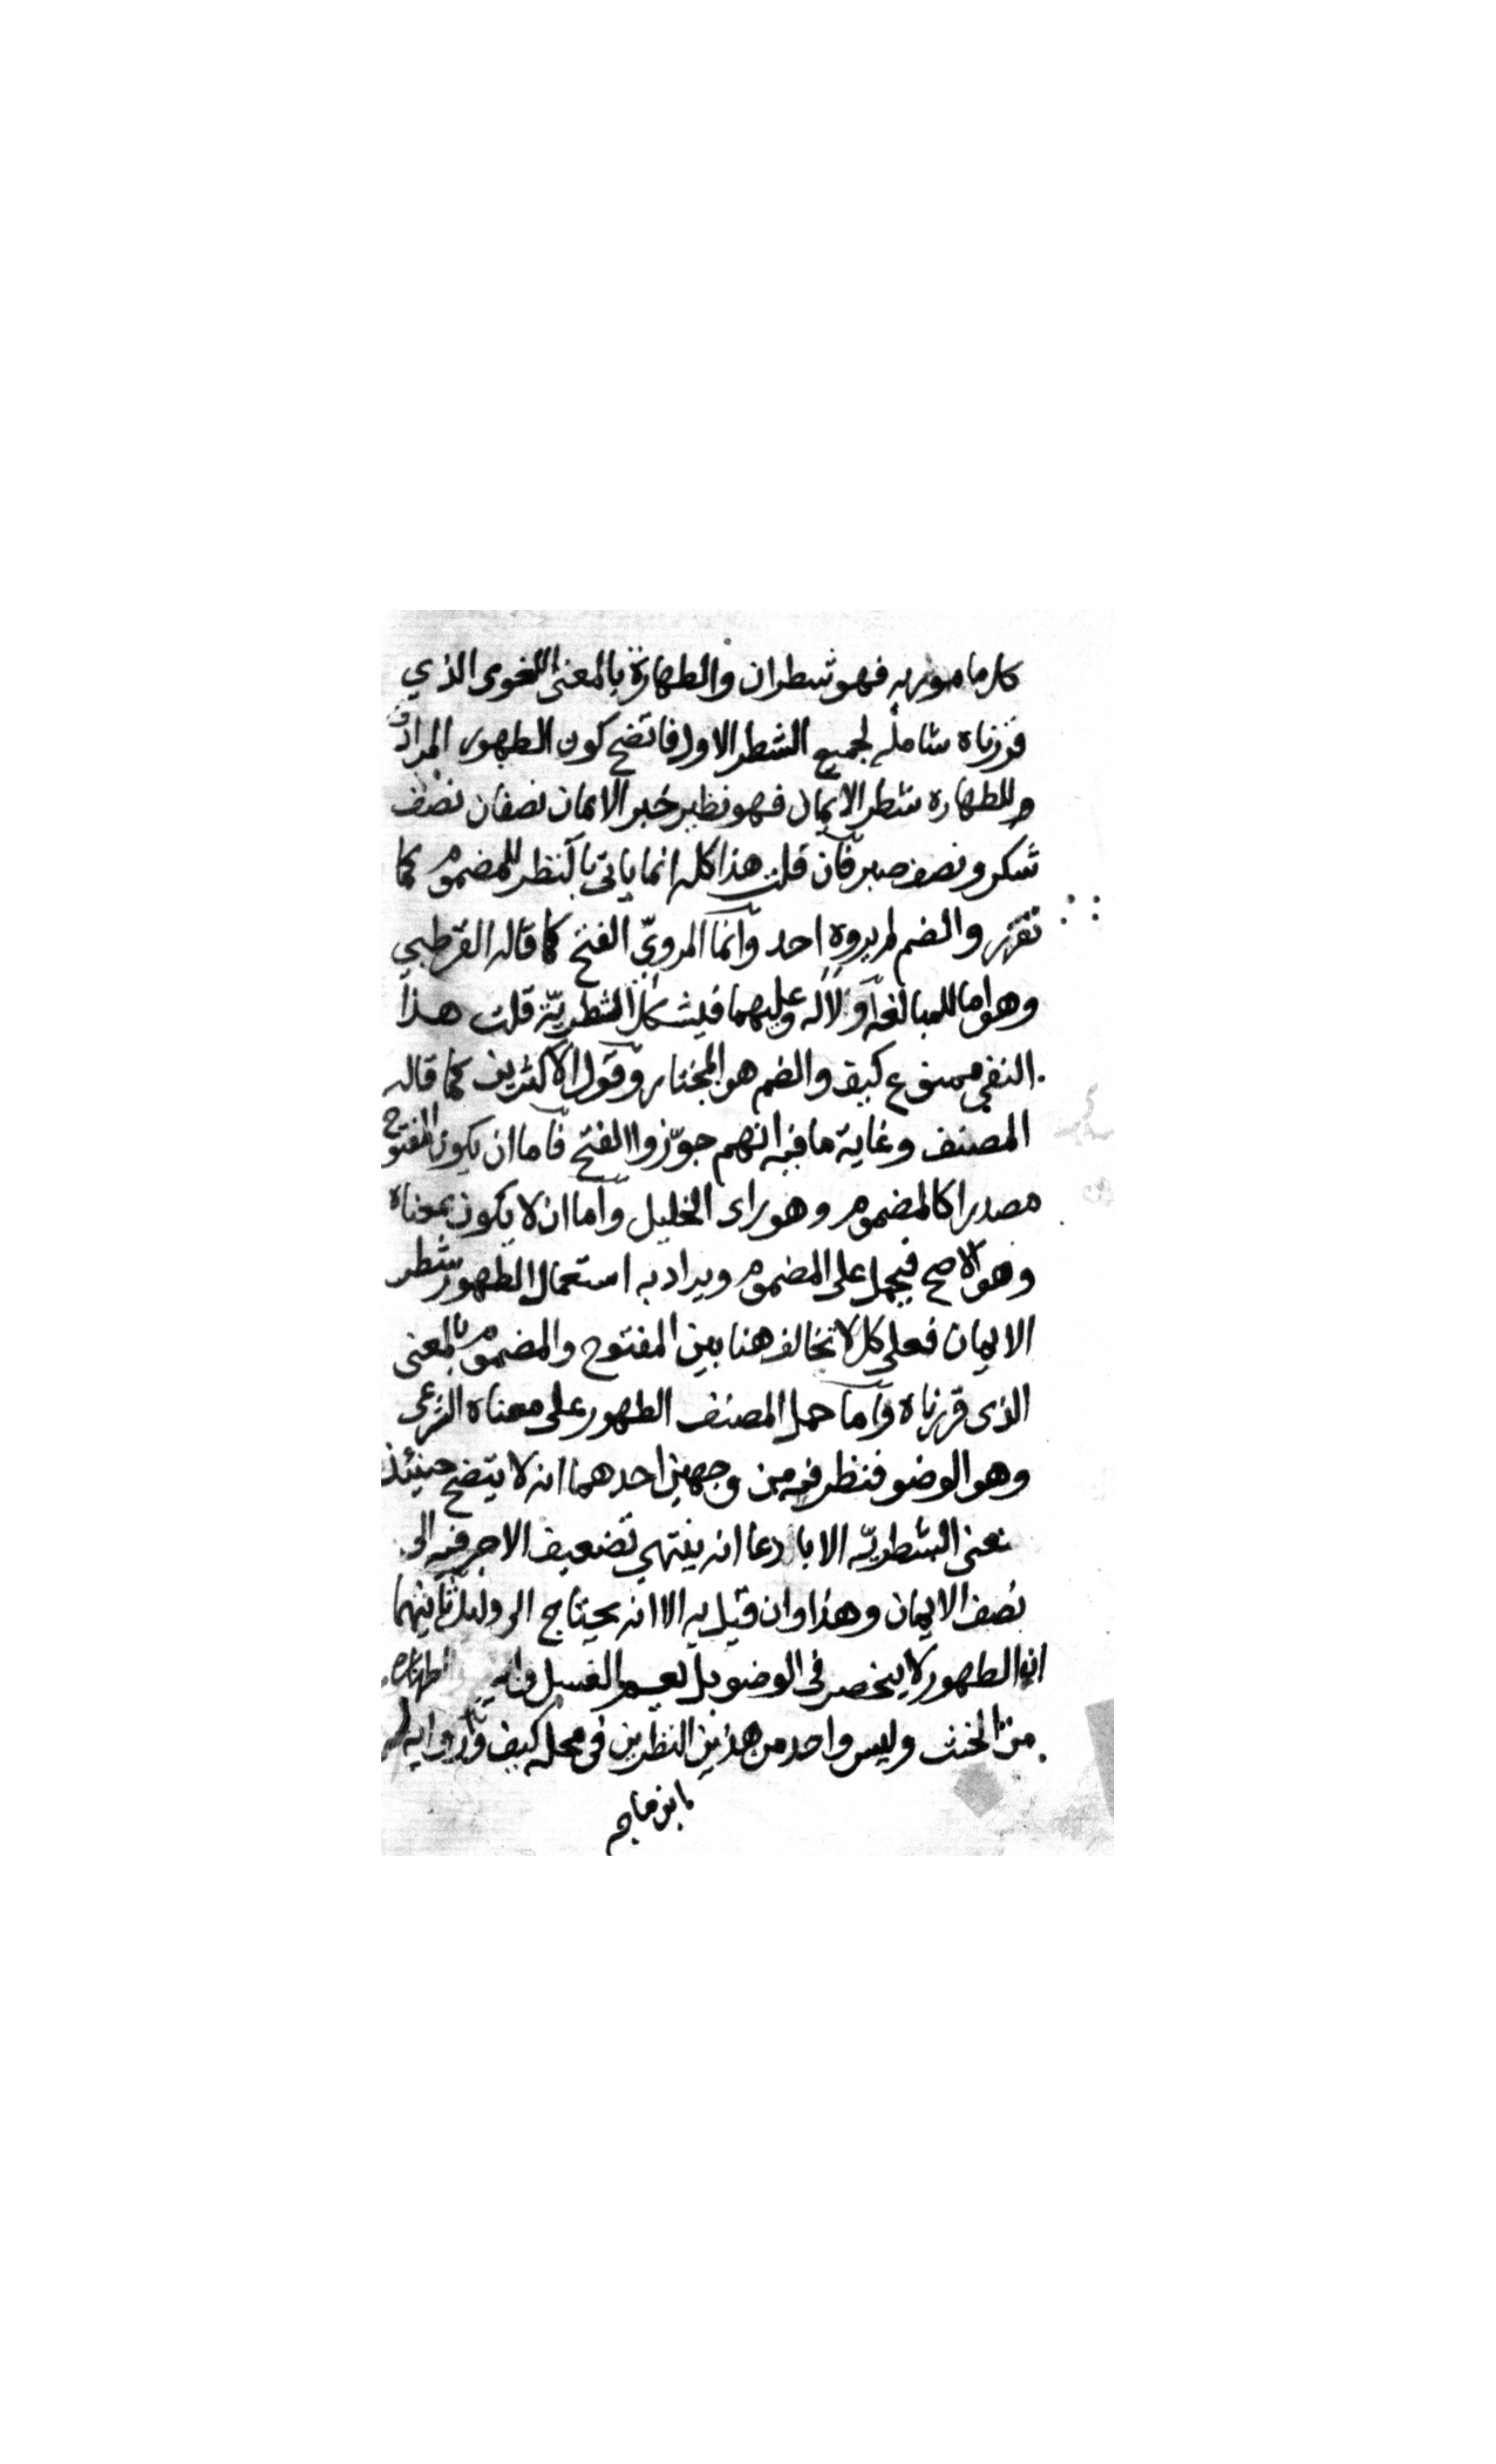 كل مامور به فهو شطران والطهارة بالمعنى اللغوى الذي
قررناه شامله لجميع الشطر الاول فاتضح كون الطهور المرادف
وللطهاره شطر الايمان فهو نظير خبر الايمان نصفان نصف
شكر ونصف صبر فان قلت هذا كله انما ياتى بالنظر للمضموم كما
تقرر والضم لم يروه احد وانما المروىّ الفتح كما قاله القرطبي
وهو اما للمبالغه او لاله وعليهما فيشكل الشطريّة قلت هذا
النفي ممنوع كيف والضم هو المختار وقول الاكثرين كما قاله
المصنف وغاية ما فيه انهم جوّزوا الفتح فاما ان يكون المفتوح
مصدرا كالمضموم وهو راى الخليل واما ان لا يكون بمعناه
وهو الاصح فيحمل على المضموم ويراد به استعمال الطهور شطر
الايمان فعلى كل لا تخالف هنا بين المفتوح والمضموم بالمعنى
الذى قررناه واما حمل المصنف الطهور على معناه الشرعى
وهو الوضو فنظر فيه من وجهين احدهما انه لا يتضح حينئذ
معنى الشطريّه الا بادعا انه ينتهي تضعيف الاجر فيه الى
نصف الايمان وهذا وان قيل به الا انه يحتاج الى دليل ثانيهما
ان الطهور لا ينحصر فى الوضو بل يعم الغسل الطهاره
من الخبث وليس واحد من هذين النظرين فى محله كيف ورواية
ابن ماجه